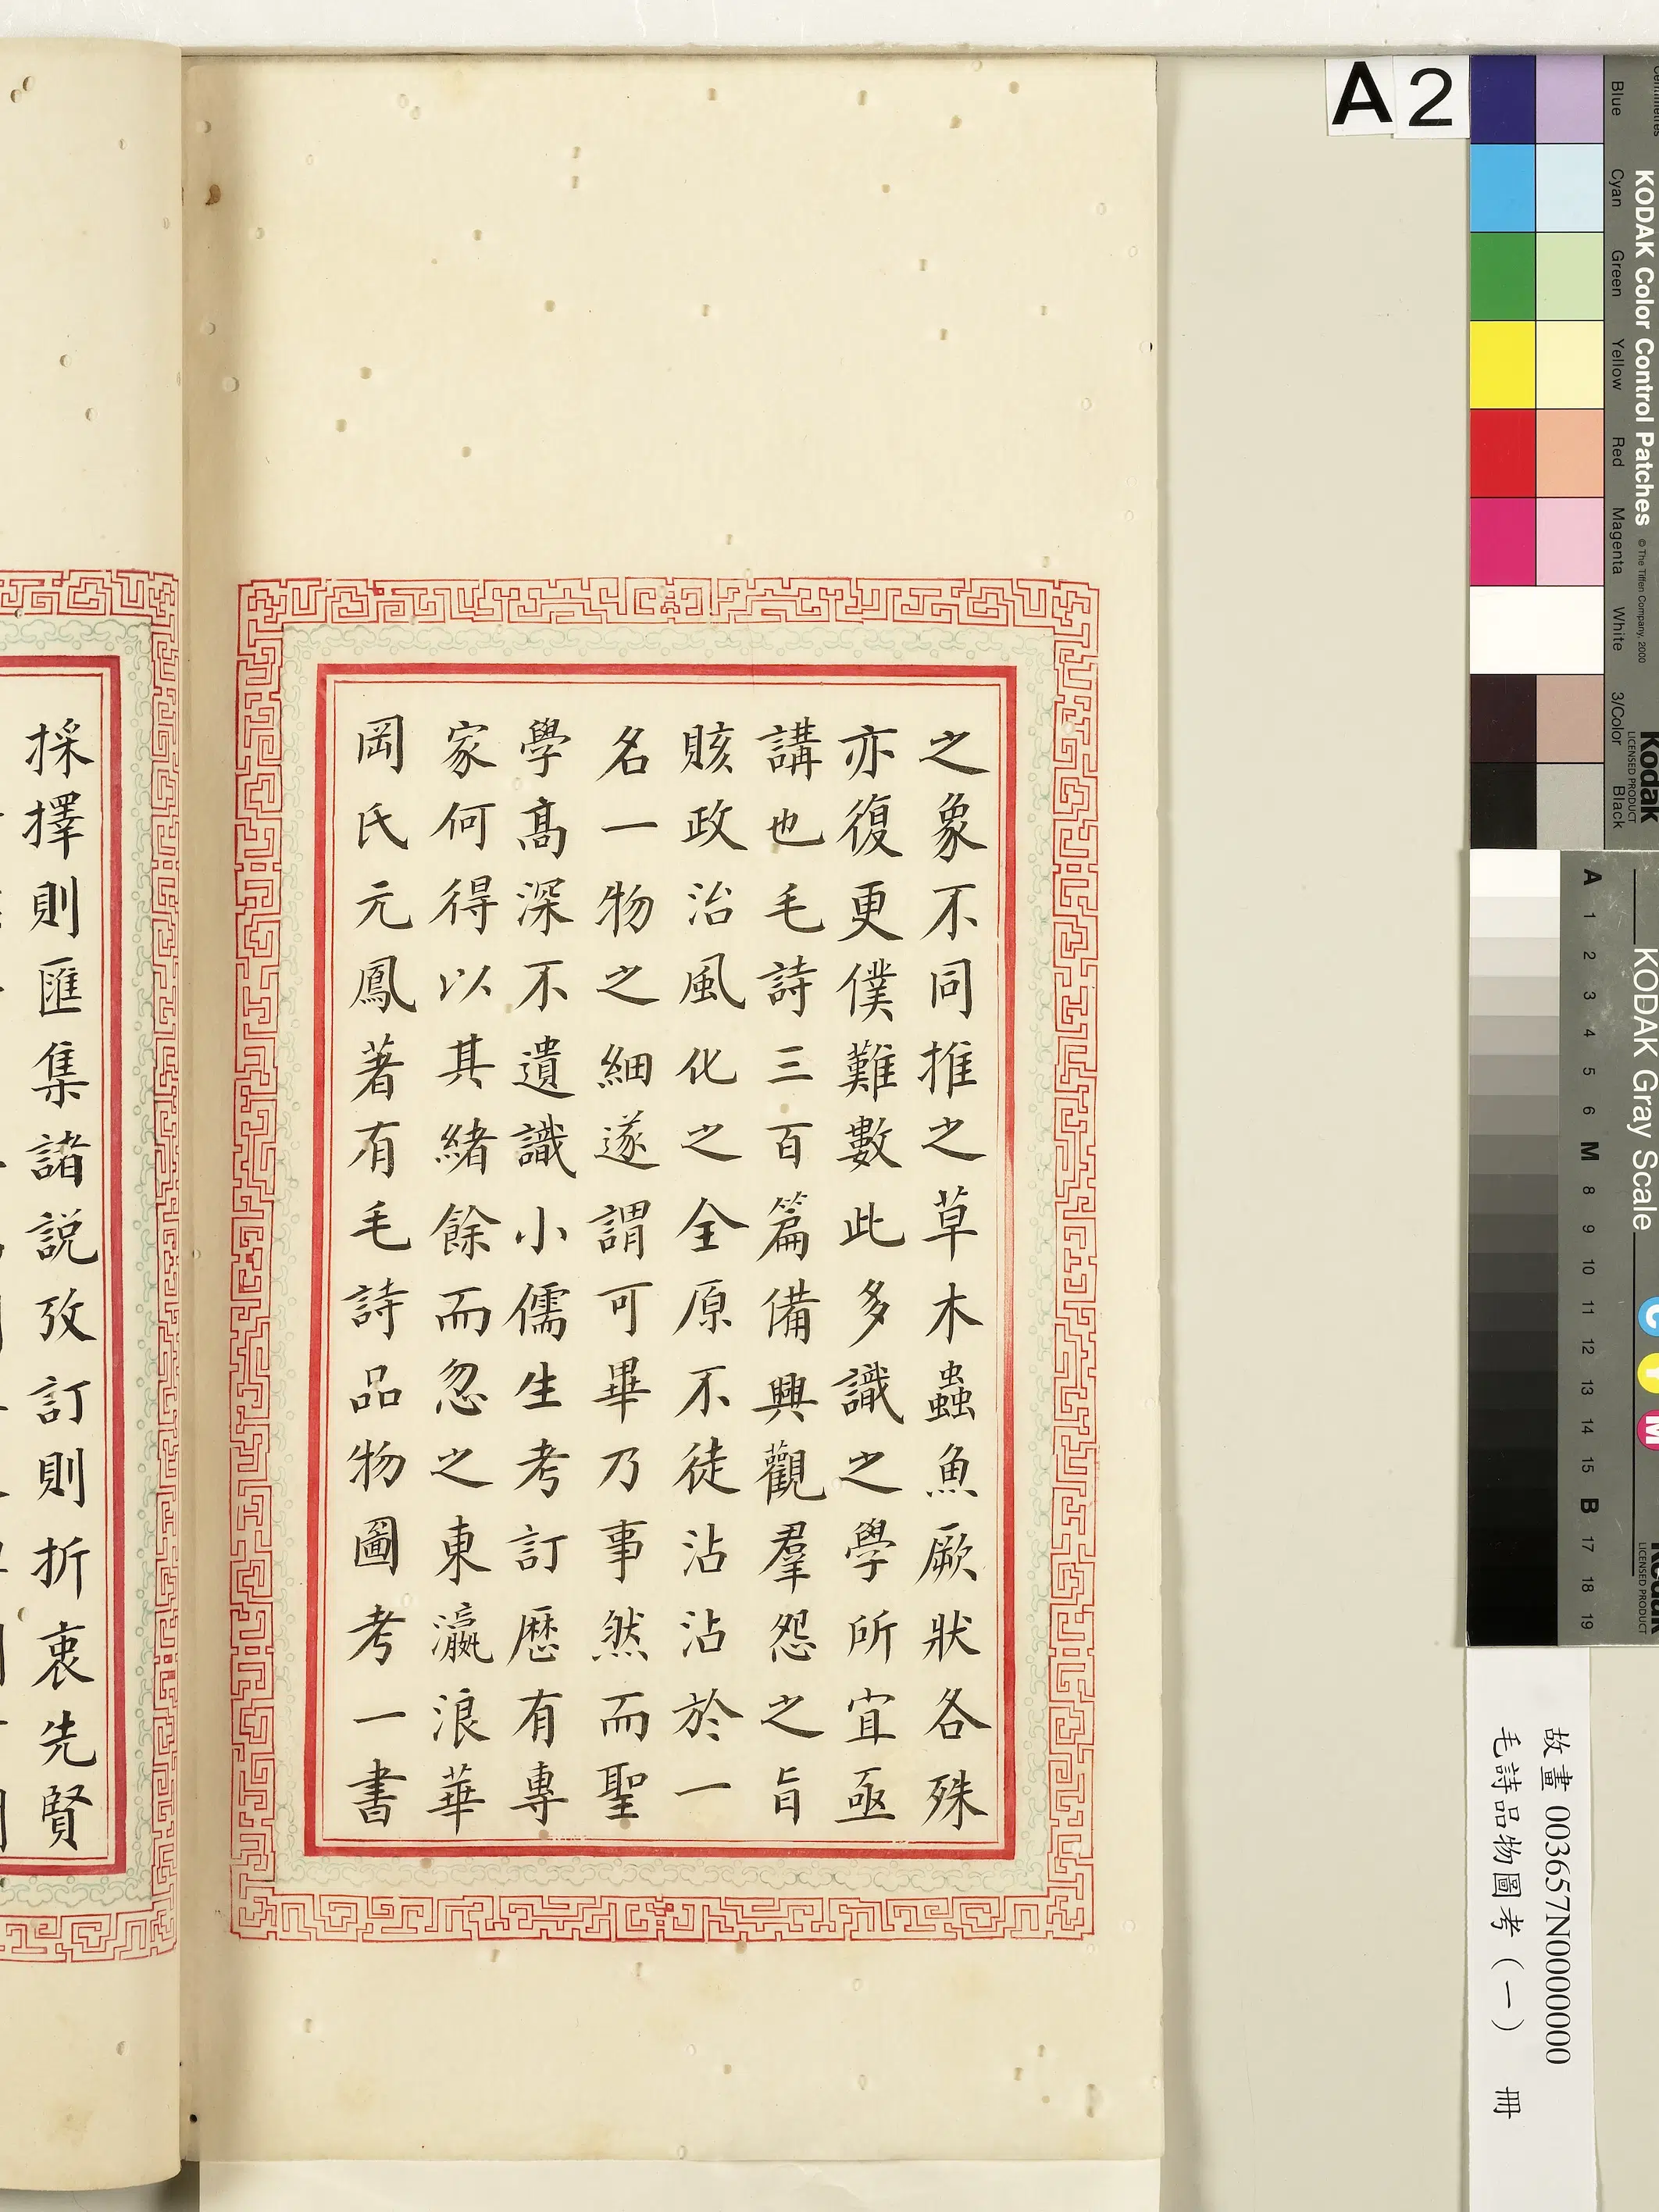 之象不同推之草木蟲魚厥狀各殊
亦復更僕難數此多識之學所宜亟
講也毛詩三百篇備興觀羣怨之旨
賅政治風化之全原不徒沾沾於一
名一物之細遂謂可畢乃事然而聖
學髙深不遺識小儒生考訂歷有專
家何得以其緒餘而忽之東瀛浪華
岡氏元鳳著有毛詩品物圖考一書
採擇則匯集諸說攷訂則折衷先賢
A2
Centimetres
Blue
Cyan
Green
Yellow
Red
Magenta
White
3/Color
Black
KODAK Color Control Patches
© The Tiffen Company, 2000
Kodak
LICENSED PRODUCT
KODAK Gray Scale
A 1 2 3 4 5 6 M 8 9 10 11 12 13 14 15 B 17 18 19
C
Y
M
Kodak
LICENSED PRODUCT
故畫 003657N000000000
毛詩品物圖考（一） 冊